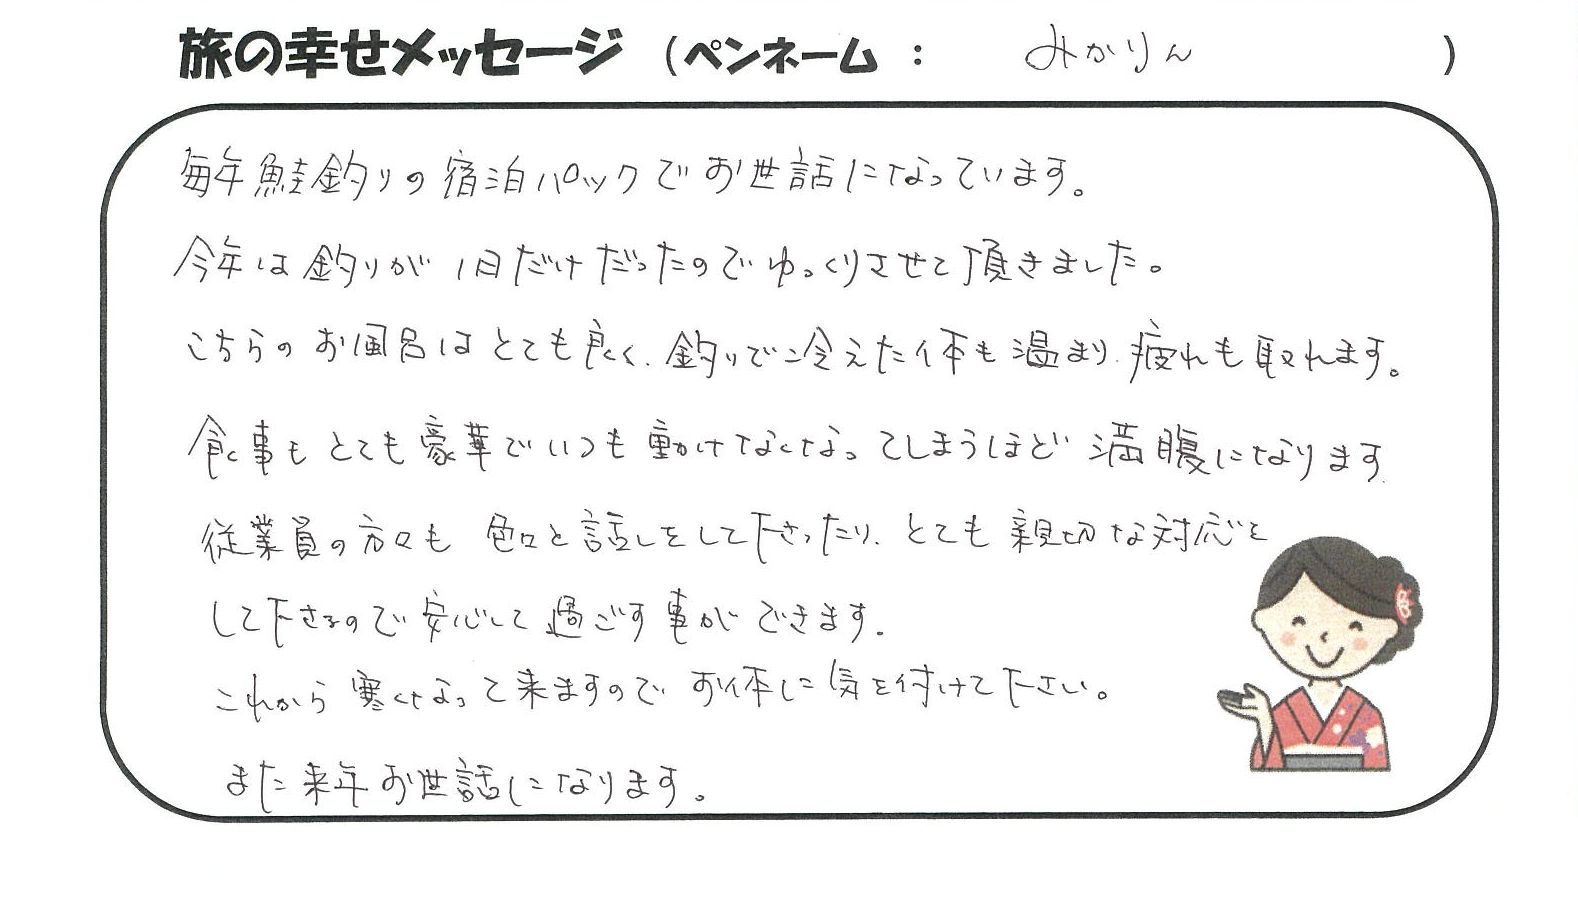 旅の幸せメッセージ (ペンネーム : みかりん )
毎年鮭釣りの宿泊パックでお世話になっています。
今年は釣りが1日だけだったのでゆっくりさせて頂きました。
こちらのお風呂はとても良く、釣りで冷えた体も温まり、疲れも取れます。
食事もとても豪華でいつも動けなくなってしまうほど満腹になります
従業員の方々も色々と話しをして下さったり、とても親切な対応を
して下さるので安心して過ごす事ができます。
これから寒くなって来ますのでお体に気を付けて下さい。
また来年お世話になります。